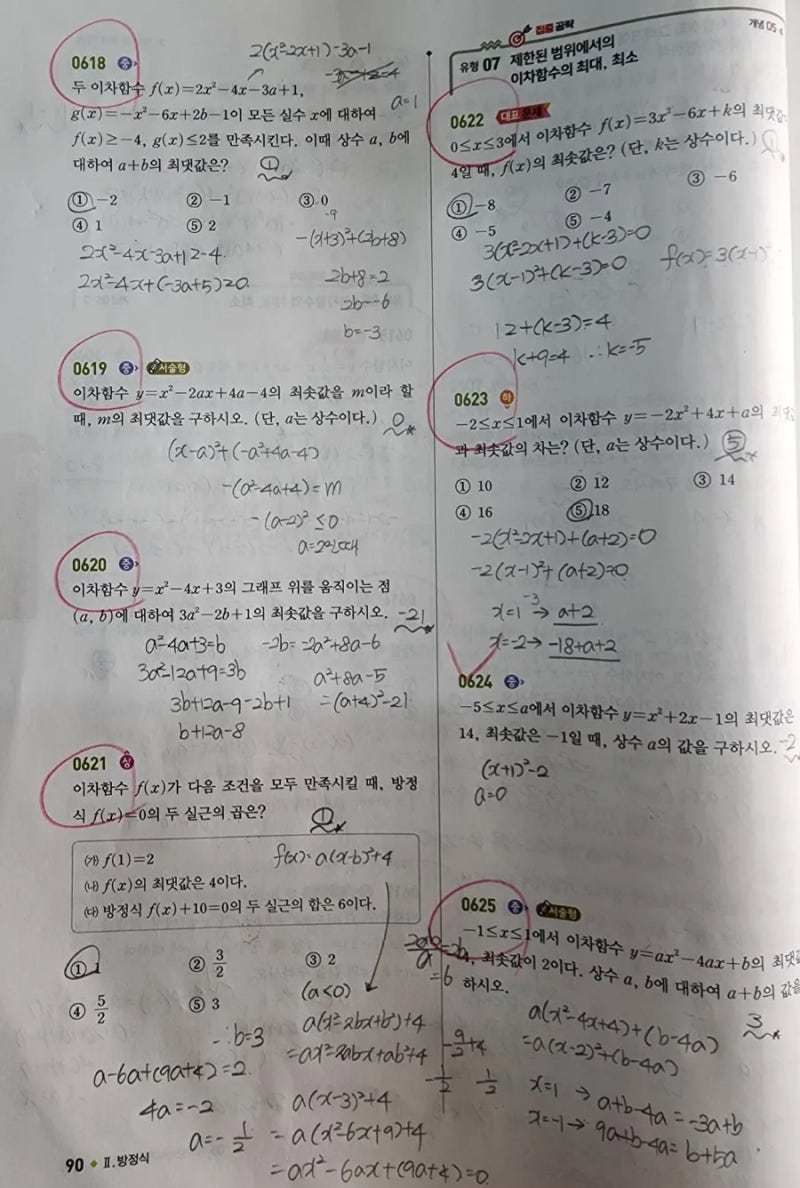 0618 중
2(x²-2x+1)-3a-1
두 이차함수 f(x)=2x²-4x-3a+1,
a=1
g(x)=-x²-6x+2b-1이 모든 실수 x에 대하여
f(x)≥-4, g(x)≤2를 만족시킨다. 이때 상수 a, b에
대하여 a+b의 최댓값은? ①
① -2 ② -1 ③ 0
④ 1 ⑤ 2
-9
-(x+3)²+(2b+8)
2x²-4x-3a+1≥-4
2x²-4x+(-3a+5)≥0
2b+8=2
2b=-6
b=-3
0619 중 서술형
이차함수 y=x²-2ax+4a-4의 최솟값을 m이라 할
때, m의 최댓값을 구하시오. (단, a는 상수이다.) 0
(x-a)²+(-a²+4a-4)
-(a²-4a+4)=m
-(a-2)²≤0
a=2일때
0620 중
이차함수 y=x²-4x+3의 그래프 위를 움직이는 점
(a, b)에 대하여 3a²-2b+1의 최솟값을 구하시오. -21
a²-4a+3=b -2b=-2a²+8a-6
3a²-12a+9=3b a²+8a-5
3b+12a-9-2b+1 =(a+4)²-21
b+12a-8
0621 상
이차함수 f(x)가 다음 조건을 모두 만족시킬 때, 방정
식 f(x)=0의 두 실근의 곱은? ①
㈎ f(1)=2 f(x)=a(x-b)²+4
㈏ f(x)의 최댓값은 4이다.
㈐ 방정식 f(x)+10=0의 두 실근의 합은 6이다.
① 1 ② 3/2 ③ 2
④ 5/2 ⑤ 3
(a<0)
=2b
=6
∴b=3
a(x²-2bx+b²)+4
=ax²-2abx+ab²+4
a-6a+(9a+4)=2
4a=-2
a=-1/2
a(x-3)²+4
=a(x²-6x+9)+4
=ax²-6ax+(9a+4)=0
-9/2+4
-1/2 1/2
90 ◆ Ⅱ. 방정식
집중 공략
개념 05
유형 07 제한된 범위에서의
이차함수의 최대, 최소
0622 대표 문제
0≤x≤3에서 이차함수 f(x)=3x²-6x+k의 최댓
4일 때, f(x)의 최솟값은? (단, k는 상수이다.) ①
① -8 ② -7 ③ -6
④ -5 ⑤ -4
3(x²-2x+1)+(k-3)=0
3(x-1)²+(k-3)=0 f(x)=3(x-1)
12+(k-3)=4
k+9=4 ∴k=-5
0623 하
-2≤x≤1에서 이차함수 y=-2x²+4x+a의
과 최솟값의 차는? (단, a는 상수이다.) ⑤
① 10 ② 12 ③ 14
④ 16 ⑤ 18
-2(x²-2x+1)+(a+2)=0
-2(x-1)²+(a+2)=0
-3
x=1 → a+2
x=-2 → -18+a+2
0624 중
-5≤x≤a에서 이차함수 y=x²+2x-1의 최댓값은
14, 최솟값은 -1일 때, 상수 a의 값을 구하시오. -2
(x+1)²-2
a=0
0625 중 서술형
-1≤x≤1에서 이차함수 y=ax²-4ax+b의 최댓
최솟값이 2이다. 상수 a, b에 대하여 a+b의 값을
하시오.
3
a(x²-4x+4)+(b-4a)
=a(x-2)²+(b-4a)
x=1 → a+b-4a=-3a+b
x=-1 → 9a+b-4a=b+5a